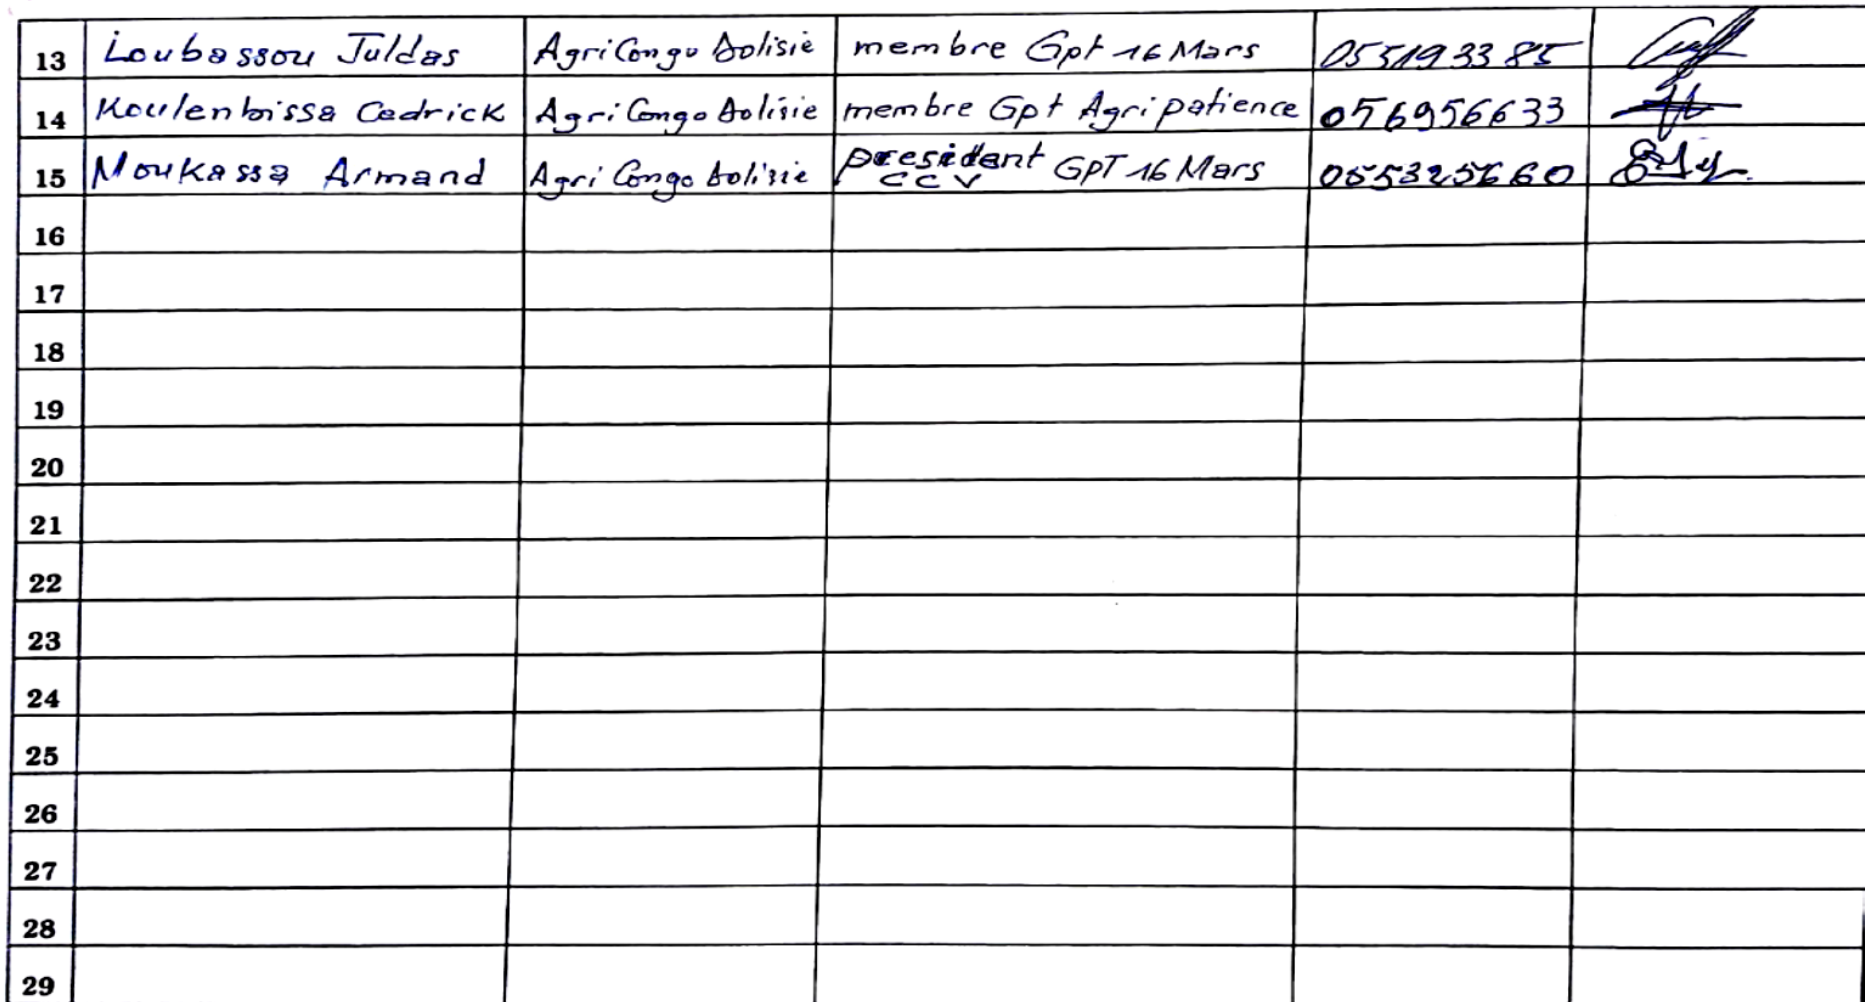 13 Loubassou Juldas AgriCongo Dolisie membre Gpt 16 Mars 055193385
14 Koulenbissa Cedrick AgriCongo Dolisie membre Gpt Agripatience 056956633
15 Moukassa Armand Agri Congo Dolisie president GPT 16 Mars 055325660
CCV
16
17
18
19
20
21
22
23
24
25
26
27
28
29